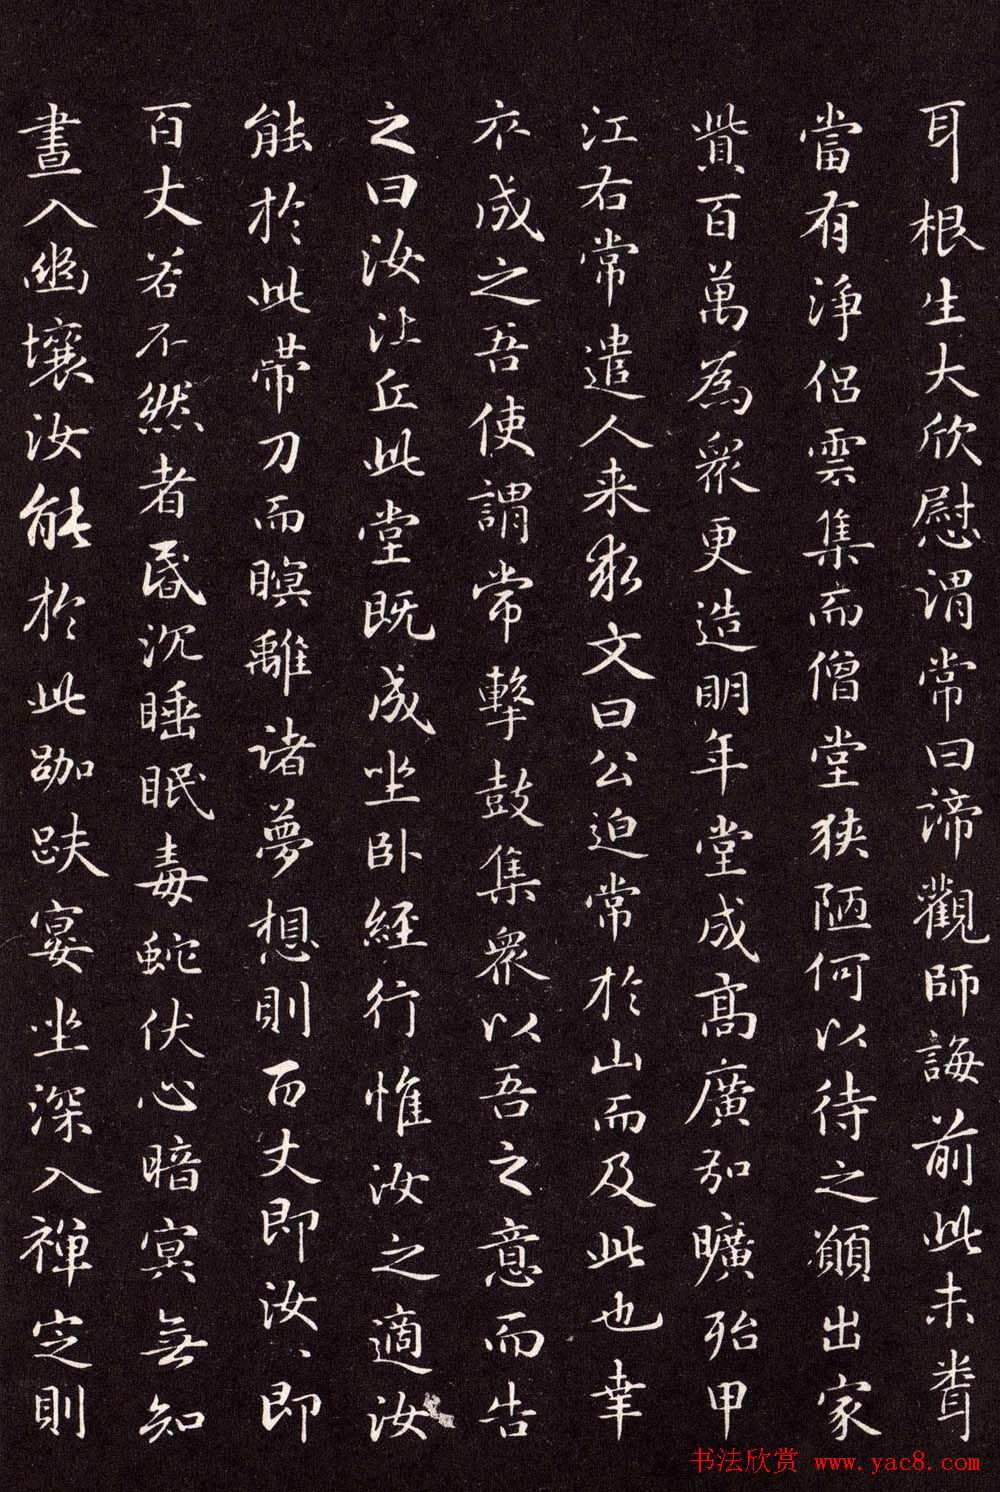 耳根生大欣慰謂常曰諦觀師誨前此未
當有淨侶雲集而僧堂狹陋何以待之願出家
貲百萬為眾更造明年堂成高廣弘曠殆甲
江右常遣人来求文曰公迫常於山而及此也幸
卒成之吾使謂常擊鼓集眾以吾之意而告
之曰汝比丘此堂既成坐卧經行惟汝之適汝
能於此帶刀而瞑離諸夢想則百丈即汝〻即
百丈若不然者昏沉睡眠毒蛇伏心暗冥無知
晝入幽壤汝能於此跏趺宴坐深入禪定則
书法欣赏 www.yac8.com